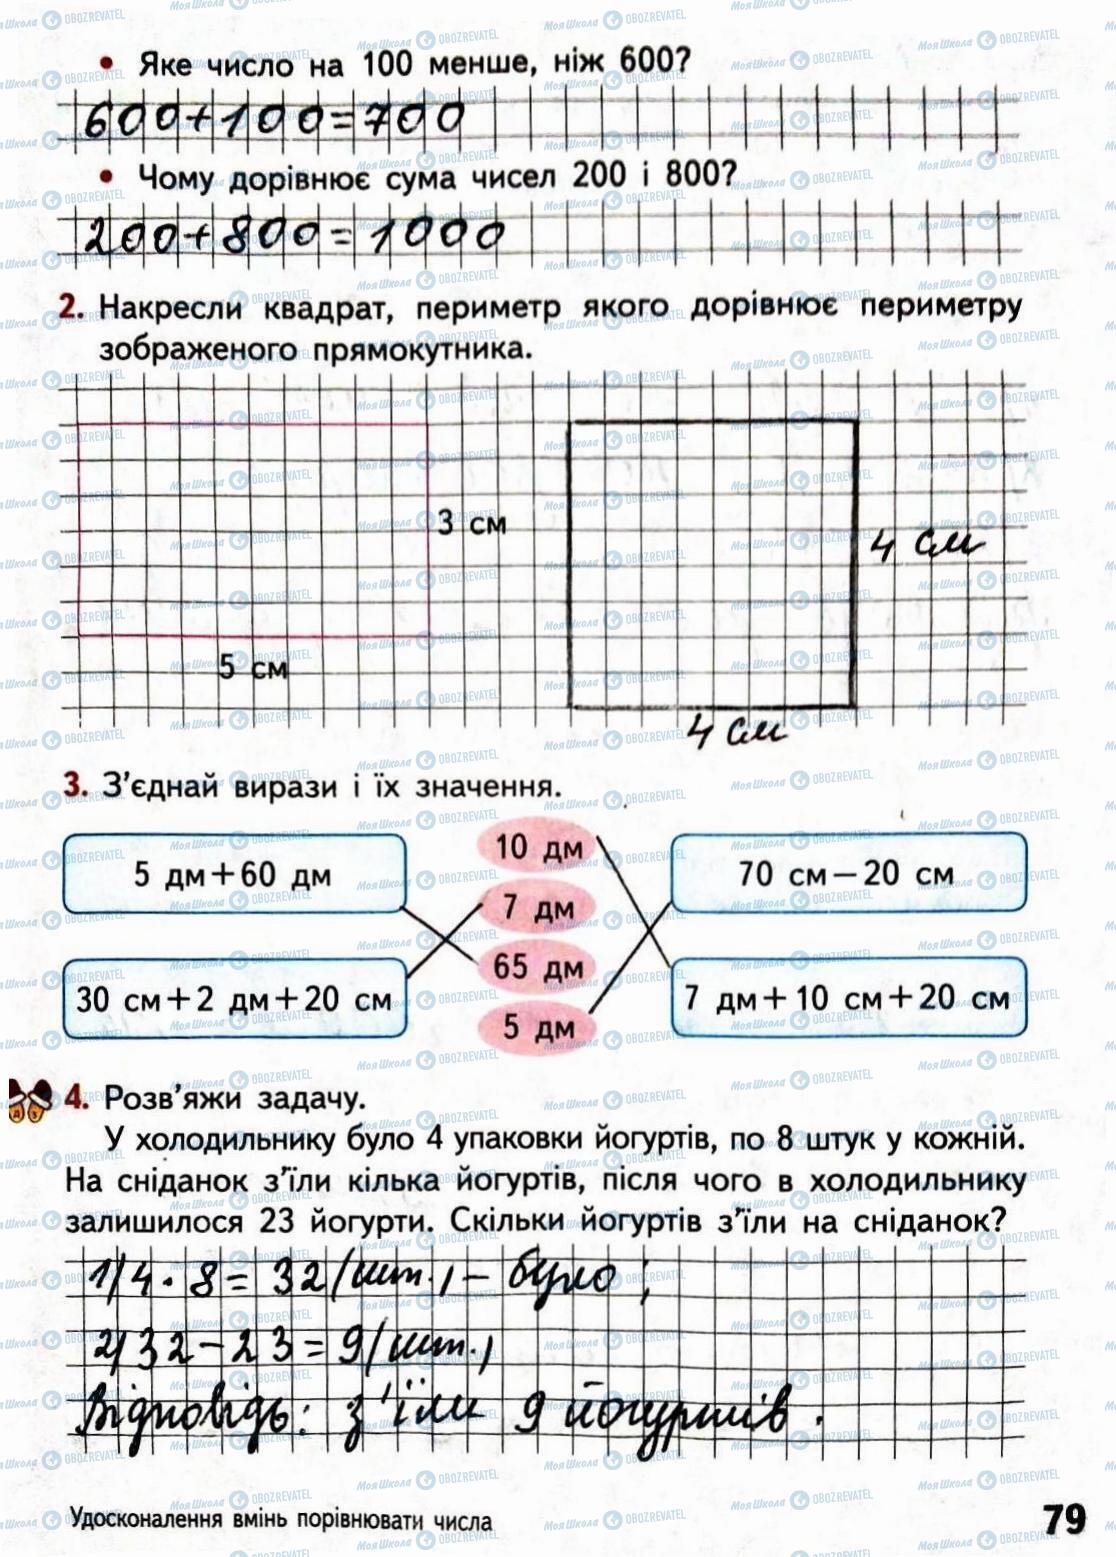 • Яке число на 100 менше, ніж 600?
600+100=700
• Чому дорівнює сума чисел 200 і 800?
200+800=1000
2. Накресли квадрат, периметр якого дорівнює периметру
зображеного прямокутника.
3 см
4 см
5 см
4 см
3. З’єднай вирази і їх значення.
10 дм
5 дм+60 дм
70 см−20 см
7 дм
65 дм
30 см+2 дм+20 см
7 дм+10 см+20 см
5 дм
4. Розв’яжи задачу.
У холодильнику було 4 упаковки йогуртів, по 8 штук у кожній.
На сніданок з’їли кілька йогуртів, після чого в холодильнику
залишилося 23 йогурти. Скільки йогуртів з’їли на сніданок?
1) 4·8=32(шт.)− було;
2) 32−23=9(шт.)
Відповідь: з’їли 9 йогуртів.
Удосконалення вмінь порівнювати числа
79
МояШкола OBOZREVATEL